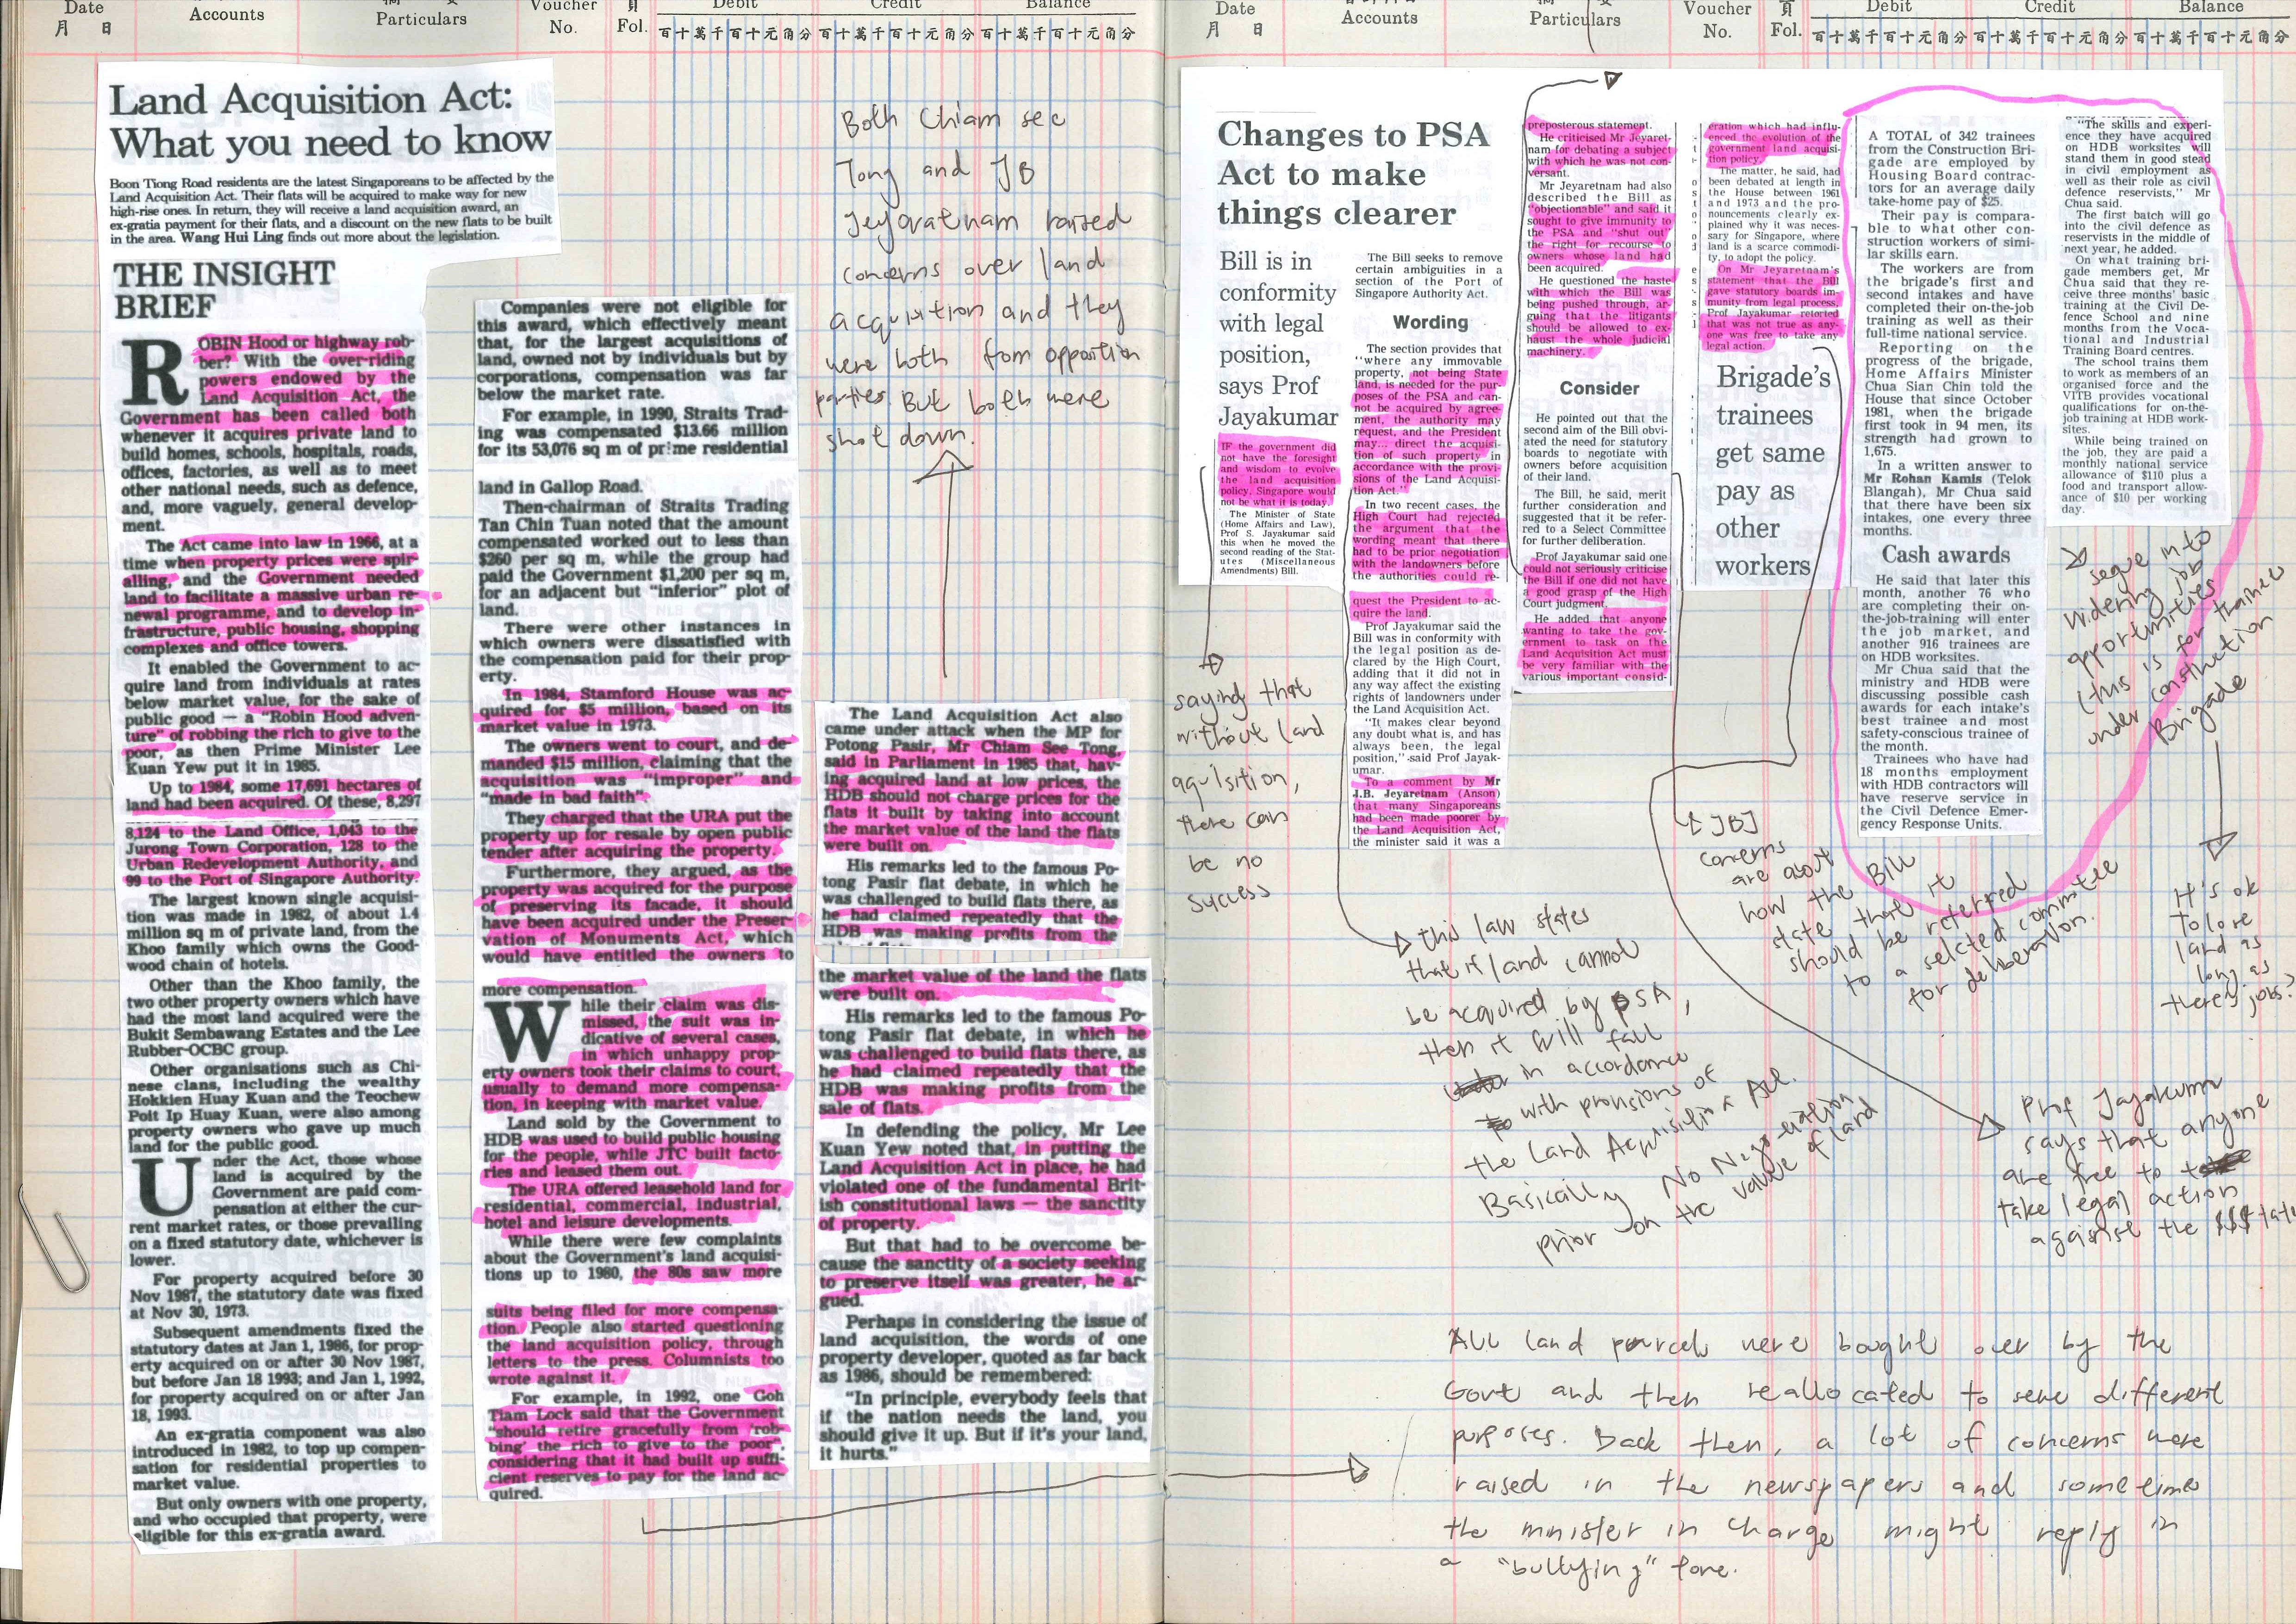 Date
月 日
Accounts
Particulars
Voucher
No.
頁
Fol.
Debit
百十萬千百十元角分
Credit
百十萬千百十元角分
Balance
百十萬千百十元角分
Land Acquisition Act:
What you need to know
Boon Tiong Road residents are the latest Singaporeans to be affected by the
Land Acquisition Act. Their flats will be acquired to make way for new
high-rise ones. In return, they will receive a land acquisition award, an
ex-gratia payment for their flats, and a discount on the new flats to be built
in the area. Wang Hui Ling finds out more about the legislation.
THE INSIGHT
BRIEF
ROBIN Hood or highway rob-
ber? With the over-riding
powers endowed by the
Land Acquisition Act, the
Government has been called both
whenever it acquires private land to
build homes, schools, hospitals, roads,
offices, factories, as well as to meet
other national needs, such as defence,
and, more vaguely, general develop-
ment.
The Act came into law in 1966, at a
time when property prices were spir-
alling, and the Government needed
land to facilitate a massive urban re-
newal programme, and to develop in-
frastructure, public housing, shopping
complexes and office towers.
It enabled the Government to ac-
quire land from individuals at rates
below market value, for the sake of
public good — a "Robin Hood adven-
ture" of robbing the rich to give to the
poor, as then Prime Minister Lee
Kuan Yew put it in 1985.
Up to 1984, some 17,691 hectares of
land had been acquired. Of these, 8,297
8,124 to the Land Office, 1,043 to the
Jurong Town Corporation, 128 to the
Urban Redevelopment Authority, and
99 to the Port of Singapore Authority.
The largest known single acquisi-
tion was made in 1982, of about 1.4
million sq m of private land, from the
Khoo family which owns the Good-
wood chain of hotels.
Other than the Khoo family, the
two other property owners which have
had the most land acquired were the
Bukit Sembawang Estates and the Lee
Rubber-OCBC group.
Other organisations such as Chi-
nese clans, including the wealthy
Hokkien Huay Kuan and the Teochew
Poit Ip Huay Kuan, were also among
property owners who gave up much
land for the public good.
Under the Act, those whose
land is acquired by the
Government are paid com-
pensation at either the cur-
rent market rates, or those prevailing
on a fixed statutory date, whichever is
lower.
For property acquired before 30
Nov 1987, the statutory date was fixed
at Nov 30, 1973.
Subsequent amendments fixed the
statutory dates at Jan 1, 1986, for prop-
erty acquired on or after 30 Nov 1987,
but before Jan 18 1993; and Jan 1, 1992,
for property acquired on or after Jan
18, 1993.
An ex-gratia component was also
introduced in 1982, to top up compen-
sation for residential properties to
market value.
But only owners with one property,
and who occupied that property, were
eligible for this ex-gratia award.
Companies were not eligible for
this award, which effectively meant
that, for the largest acquisitions of
land, owned not by individuals but by
corporations, compensation was far
below the market rate.
For example, in 1990, Straits Trad-
ing was compensated $13.66 million
for its 53,076 sq m of prime residential
land in Gallop Road.
Then-chairman of Straits Trading
Tan Chin Tuan noted that the amount
compensated worked out to less than
$260 per sq m, while the group had
paid the Government $1,200 per sq m,
for an adjacent but "inferior" plot of
land.
There were other instances in
which owners were dissatisfied with
the compensation paid for their prop-
erty.
In 1984, Stamford House was ac-
quired for $5 million, based on its
market value in 1973.
The owners went to court, and de-
manded $15 million, claiming that the
acquisition was "improper" and
"made in bad faith".
They charged that the URA put the
property up for resale by open public
tender after acquiring the property.
Furthermore, they argued, as the
property was acquired for the purpose
of preserving its facade, it should
have been acquired under the Preser-
vation of Monuments Act, which
would have entitled the owners to
more compensation.
While their claim was dis-
missed, the suit was in-
dicative of several cases,
in which unhappy prop-
erty owners took their claims to court,
usually to demand more compensa-
tion, in keeping with market value.
Land sold by the Government to
HDB was used to build public housing
for the people, while JTC built facto-
ries and leased them out.
The URA offered leasehold land for
residential, commercial, industrial,
hotel and leisure developments.
While there were few complaints
about the Government's land acquisi-
tions up to 1980, the 80s saw more
suits being filed for more compensa-
tion. People also started questioning
the land acquisition policy, through
letters to the press. Columnists too
wrote against it.
For example, in 1992, one Goh
Tiam Lock said that the Government
"should retire gracefully from 'rob-
bing' the rich to give to the poor",
considering that it had built up suffi-
cient reserves to pay for the land ac-
quired.
Both Chiam sec
Tong and JB
Jeyaratnam raised
concerns over land
acquisition and they
were both from opposition
parties. But both were
shot down.
The Land Acquisition Act also
came under attack when the MP for
Potong Pasir, Mr Chiam See Tong,
said in Parliament in 1985 that, hav-
ing acquired land at low prices, the
HDB should not charge prices for the
flats it built by taking into account
the market value of the land the flats
were built on.
His remarks led to the famous Po-
tong Pasir flat debate, in which he
was challenged to build flats there, as
he had claimed repeatedly that the
HDB was making profits from the
the market value of the land the flats
were built on.
His remarks led to the famous Po-
tong Pasir flat debate, in which he
was challenged to build flats there, as
he had claimed repeatedly that the
HDB was making profits from the
sale of flats.
In defending the policy, Mr Lee
Kuan Yew noted that, in putting the
Land Acquisition Act in place, he had
violated one of the fundamental Brit-
ish constitutional laws — the sanctity
of property.
But that had to be overcome be-
cause the sanctity of a society seeking
to preserve itself was greater, he ar-
gued.
Perhaps in considering the issue of
land acquisition, the words of one
property developer, quoted as far back
as 1986, should be remembered:
"In principle, everybody feels that
if the nation needs the land, you
should give it up. But if it's your land,
it hurts."
Date
月 日
Accounts
Particulars
Voucher
No.
頁
Fol.
Debit
百十萬千百十元角分
Credit
百十萬千百十元角分
Balance
百十萬千百十元角分
Changes to PSA
Act to make
things clearer
Bill is in
conformity
with legal
position,
says Prof
Jayakumar
IF the government did
not have the foresight
and wisdom to evolve
the land acquisition
policy, Singapore would
not be what it is today.
The Minister of State
(Home Affairs and Law),
Prof S. Jayakumar said
this when he moved the
second reading of the Stat-
utes (Miscellaneous
Amendments) Bill.
The Bill seeks to remove
certain ambiguities in a
section of the Port of
Singapore Authority Act.
Wording
The section provides that
"where any immovable
property, not being State
land, is needed for the pur-
poses of the PSA and can-
not be acquired by agree-
ment, the authority may
request, and the President
may... direct the acquisi-
tion of such property in
accordance with the provi-
sions of the Land Acquisi-
tion Act."
In two recent cases, the
High Court had rejected
the argument that the
wording meant that there
had to be prior negotiation
with the landowners before
the authorities could re-
quest the President to ac-
quire the land.
Prof Jayakumar said the
Bill was in conformity with
the legal position as de-
clared by the High Court,
adding that it did not in
any way affect the existing
rights of landowners under
the Land Acquisition Act.
"It makes clear beyond
any doubt what is, and has
always been, the legal
position," said Prof Jayak-
umar.
To a comment by Mr
J.B. Jeyaretnam (Anson)
that many Singaporeans
had been made poorer by
the Land Acquisition Act,
the minister said it was a
preposterous statement.
He criticised Mr Jeyaret-
nam for debating a subject
with which he was not con-
versant.
Mr Jeyaretnam had also
described the Bill as
"objectionable" and said it
sought to give immunity to
the PSA and "shut out"
the right for recourse to
owners whose land had
been acquired.
He questioned the haste
with which the Bill was
being pushed through, ar-
guing that the litigants
should be allowed to ex-
haust the whole judicial
machinery.
Consider
He pointed out that the
second aim of the Bill obvi-
ated the need for statutory
boards to negotiate with
owners before acquisition
of their land.
The Bill, he said, merit
further consideration and
suggested that it be refer-
red to a Select Committee
for further deliberation.
Prof Jayakumar said one
could not seriously criticise
the Bill if one did not have
a good grasp of the High
Court judgment.
He added that anyone
wanting to take the gov-
ernment to task on the
Land Acquisition Act must
be very familiar with the
various important consid-
eration which had influ-
enced the evolution of the
government land acquisi-
tion policy.
The matter, he said, had
been debated at length in
the House between 1961
and 1973 and the pro-
nouncements clearly ex-
plained why it was neces-
sary for Singapore, where
land is a scarce commodi-
ty, to adopt the policy.
On Mr Jeyaretnam's
statement that the Bill
gave statutory boards im-
munity from legal process,
Prof Jayakumar retorted
that was not true as any-
one was free to take any
legal action.
Brigade's
trainees
get same
pay as
other
workers
A TOTAL of 342 trainees
from the Construction Bri-
gade are employed by
Housing Board contrac-
tors for an average daily
take-home pay of $25.
Their pay is compara-
ble to what other con-
struction workers of simi-
lar skills earn.
The workers are from
the brigade's first and
second intakes and have
completed their on-the-job
training as well as their
full-time national service.
Reporting on the
progress of the brigade,
Home Affairs Minister
Chua Sian Chin told the
House that since October
1981, when the brigade
first took in 94 men, its
strength had grown to
1,675.
In a written answer to
Mr Rohan Kamis (Telok
Blangah), Mr Chua said
that there have been six
intakes, one every three
months.
Cash awards
He said that later this
month, another 76 who
are completing their on-
the-job-training will enter
the job market, and
another 916 trainees are
on HDB worksites.
Mr Chua said that the
ministry and HDB were
discussing possible cash
awards for each intake's
best trainee and most
safety-conscious trainee of
the month.
Trainees who have had
18 months employment
with HDB contractors will
have reserve service in
the Civil Defence Emer-
gency Response Units.
"The skills and experi-
ence they have acquired
on HDB worksites will
stand them in good stead
in civil employment as
well as their role as civil
defence reservists," Mr
Chua said.
The first batch will go
into the civil defence as
reservists in the middle of
next year, he added.
On what training bri-
gade members get, Mr
Chua said that they re-
ceive three months' basic
training at the Civil De-
fence School and nine
months from the Voca-
tional and Industrial
Training Board centres.
The school trains them
to work as members of an
organised force and the
VITB provides vocational
qualifications for on-the-
job training at HDB work-
sites.
While being trained on
the job, they are paid a
monthly national service
allowance of $110 plus a
food and transport allow-
ance of $10 per working
day.
saying that
without land
aquisition,
there can
be no
success
this law states
that if land cannot
be acquired by PSA,
then it will fall
in accordance
with provisions of
the Land Acquisition Act.
Basically No Negotiation
prior on the value of land
JBJ
concerns
are about
how the Bill
state that it
should be referred
to a selected committee
for deliberation.
segue into
widening job
opportunities
(this is for trainees
under construction
Brigade
It's ok
to lose
land as
long as
there's jobs?
Prof Jayakumar
says that anyone
are free to
take legal action
against the $$$tate
All land parcels were bought over by the
Govt and then reallocated to serve different
purposes. Back then, a lot of concerns were
raised in the newspapers and sometime
the minister in charge might reply in
a "bullying" tone.